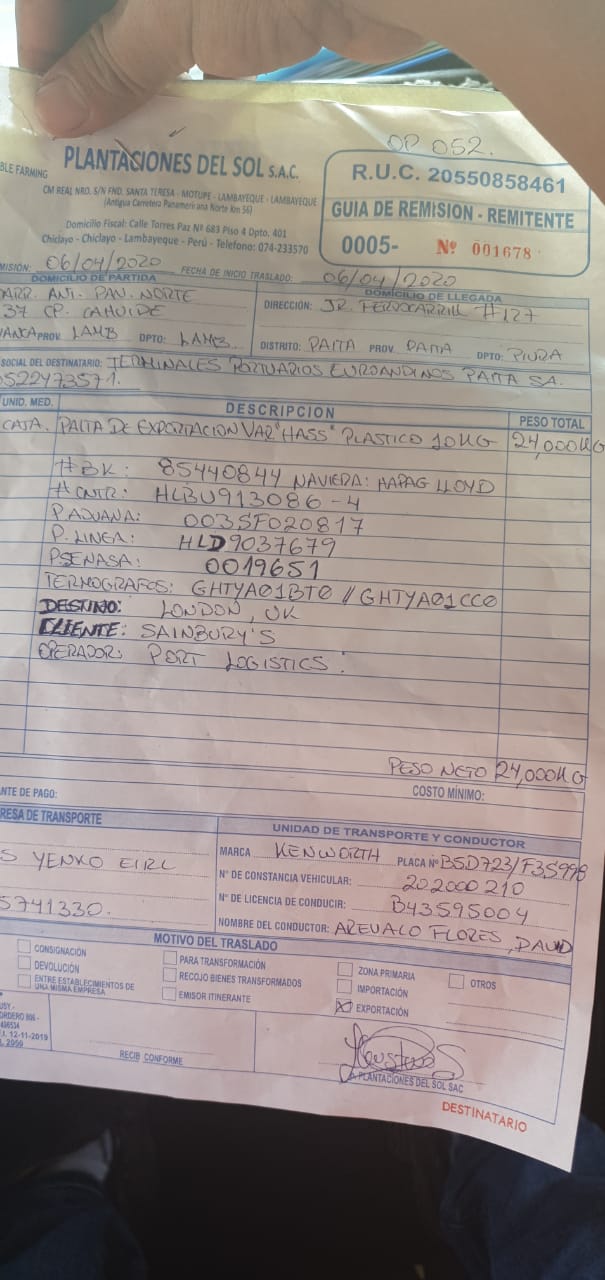 OP 052.
BLE FARMING
PLANTACIONES DEL SOL S.A.C.
CM REAL NRO. S/N FND. SANTA TERESA - MOTUPE - LAMBAYEQUE - LAMBAYEQUE
(Antigua Carretera Panamericana Norte Km 56)
Domicilio Fiscal: Calle Torres Paz Nº 683 Piso 4 Dpto. 401
Chiclayo - Chiclayo - Lambayeque - Perú - Telefono: 074-233570
R.U.C. 20550858461
GUIA DE REMISION - REMITENTE
0005- Nº 001678
MISIÓN: 06/04/2020 FECHA DE INICIO TRASLADO: 06/04/2020
DOMICILIO DE PARTIDA
CARR. ANT. PAN. NORTE
37 CP. CAHUIDE
PROV LAMB DPTO: LAMB.
DOMICILIO DE LLEGADA
DIRECCIÓN: JR. FERROCARRIL #127
DISTRITO: PAITA PROV. PAITA DPTO: PIURA
SOCIAL DEL DESTINATARIO: TERMINALES PORTUARIOS EUROANDINOS PAITA SA.
0522473571.
UNID. MED. DESCRIPCION PESO TOTAL
CAJA. PALTA DE EXPORTACION VAR "HASS" PLASTICO 10KG 24,000KG
#BK: 85440844 NAVIERA: HAPAG LLOYD
#CNTR: HLBU913086-4
P.ADUANA: 003SF020817
P. LINEA: HLD9037679
P.SENASA: 0019651
TERMOGRAFOS: GHTYA01BT0 // GHTYA01CC0
DESTINO: LONDON, UK
CLIENTE: SAINBURY'S
OPERADOR: PORT LOGISTICS.
PESO NETO 24,000KG
NTE DE PAGO: COSTO MÍNIMO:
RESA DE TRANSPORTE
S YENKO EIRL
5741330.
UNIDAD DE TRANSPORTE Y CONDUCTOR
MARCA KENWORTH PLACA Nº B5D723/F3S998
N° DE CONSTANCIA VEHICULAR: 202000210
N° DE LICENCIA DE CONDUCIR: B43595004
NOMBRE DEL CONDUCTOR: AREVALO FLORES, DAVID
MOTIVO DEL TRASLADO
CONSIGNACIÓN
DEVOLUCIÓN
ENTRE ESTABLECIMIENTOS DE
UNA MISMA EMPRESA
PARA TRANSFORMACIÓN
RECOJO BIENES TRANSFORMADOS
EMISOR ITINERANTE
ZONA PRIMARIA
IMPORTACIÓN
EXPORTACIÓN
OTROS
ORDERO 806 -
12-11-2019
RECIB CONFORME
PLANTACIONES DEL SOL SAC
DESTINATARIO